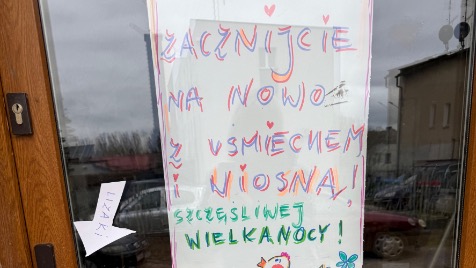 ZACZNIJCIE
NA NOWO
Z USMIECHEM
I WIOSNĄ!
SZCZĘŚLIWEJ
WIELKANOCY!
LIZAKI